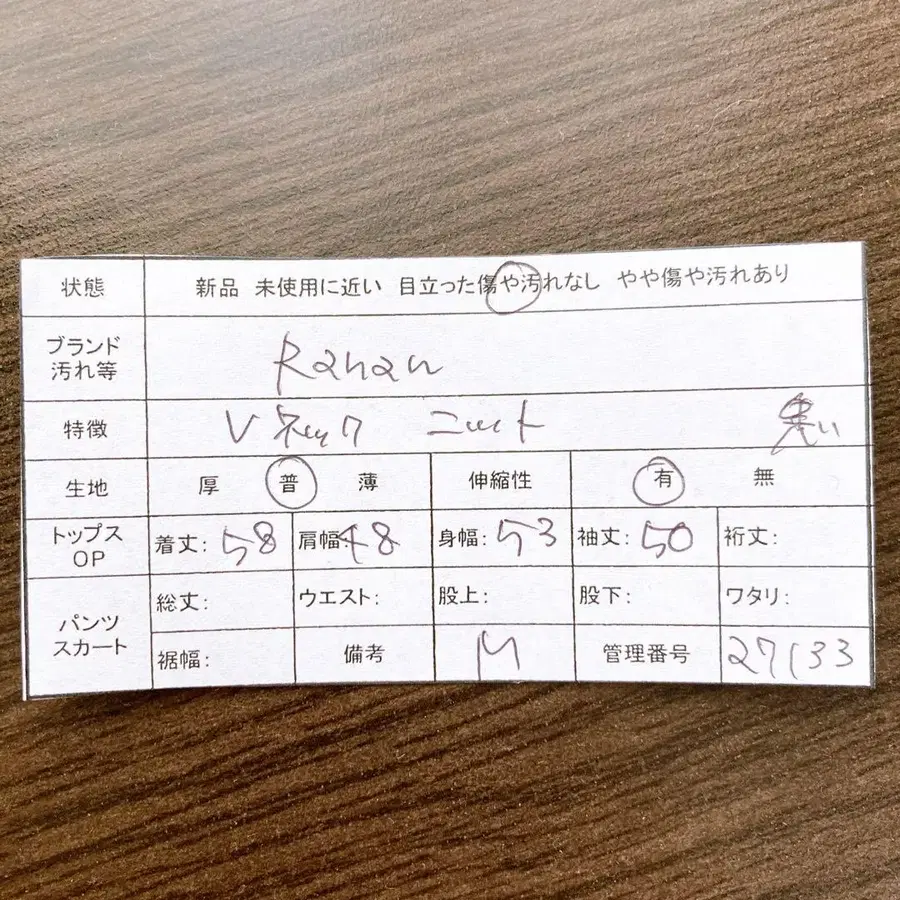 状態 新品 未使用に近い 目立った傷や汚れなし やや傷や汚れあり
ブランド
汚れ等
Ranan
特徴 Vネック ニット
生地 厚 普 薄 伸縮性 有 無
トップス
OP
着丈: 58 肩幅: 48 身幅: 53 袖丈: 50 裄丈:
パンツ
スカート
総丈: ウエスト: 股上: 股下: ワタリ:
裾幅: 備考 M 管理番号 27133